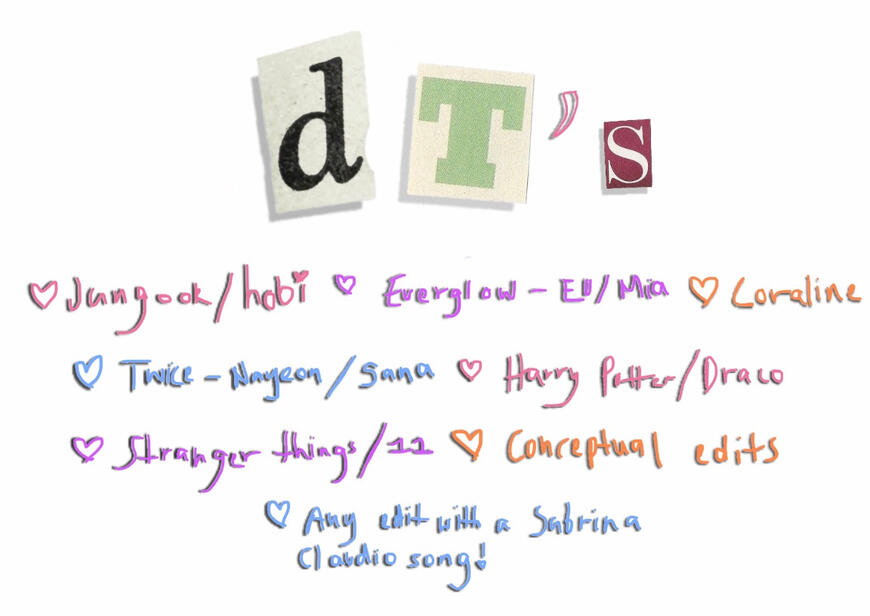 dT's
♡ Jungook/hobi ♡ Everglow - EU/Mia ♡ Coraline
♡ Twice - Nayeon/Sana ♡ Harry Potter/Draco
♡ Stranger things/11 ♡ Conceptual edits
♡ Any edit with a Sabrina
Claudio song!